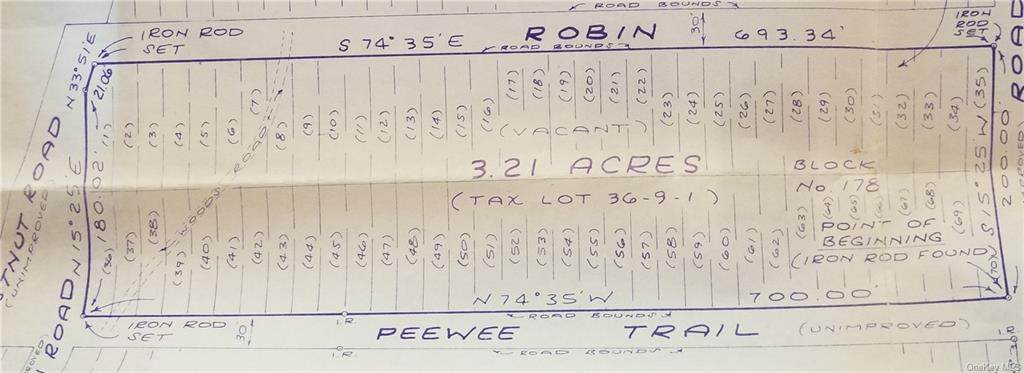 ROAD BOUNDS
IRON ROD
SET
S 74° 35' E
ROBIN
ROAD BOUNDS
30'
693.34'
IRON
ROD
SET
ROAD
N 33° 51' E
21.06
(1) (2) (3) (4) (5) (6) (7) (8) (9) (10) (11) (12) (13) (14) (15) (16) (17) (18) (19) (20) (21) (22) (23) (24) (25) (26) (27) (28) (29) (30) (31) (32) (33) (34) (35)
(VACANT)
3.21 ACRES
(TAX LOT 36-9-1)
BLOCK
No. 178
WOODS ROAD
TNUT ROAD
(UNIMPROVED)
N 15° 25' E 180.02'
S 15° 25' W
200.00'
(36) (37) (38) (39) (40) (41) (42) (43) (44) (45) (46) (47) (48) (49) (50) (51) (52) (53) (54) (55) (56) (57) (58) (59) (60) (61) (62) (63) (64) (65) (66) (67) (68) (69) (70)
POINT OF
BEGINNING
(IRON ROD FOUND)
N 74° 35' W
700.00'
ROAD BOUNDS
IRON ROD
SET
30'
I.R.
PEEWEE TRAIL (UNIMPROVED)
I.R.
30'
ROAD BOUNDS
I.R.
ROAD
OneKey MLS